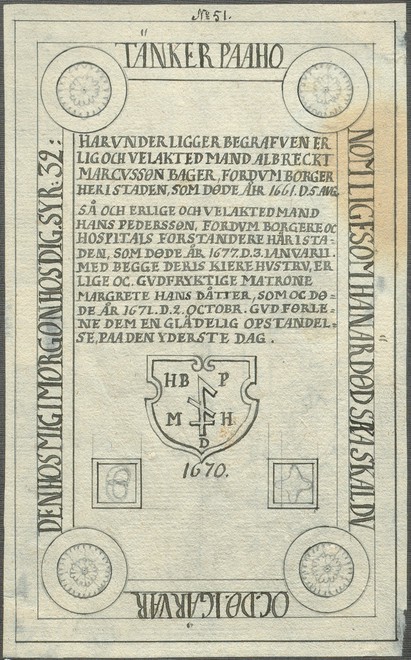 No 51.
TÄNKER PAA HO
NOM LIGESOM HAN ÄR DØD SAA SKAL DV
OC DØ. I GAR VAR
DEN HOS MIG I MORGON HOS DIG. SYR: 39:
HARVNDER LIGGER BEGRAFVEN ER
LIG OCH VELAKTED MAND ALBRECKT
MARCVSSØN BAGER, FORDVM BORGER
HER I STADEN, SOM DØDE ÅR 1661. D. 5 AVG.
SÅ OCH ERLIGE OCH VELAKTED MAND
HANS PEDERSSØN, FORDVM BORGERE OC
HOSPITALS FORSTANDERE HÄR I STA=
DEN, SOM DØDE ÅR 1677. D. 3. IANVARII.
MED BEGGE DERIS KIERE HVSTRV, ER
LIGE OC. GVDFRYKTIGE MATRONE
MARGRETE HANS DÄTTER, SOM OC DØ=
DE ÅR 1671. D. 2. OCTOBR. GVD FØRLE=
NE DEM EN GLÄDELIG OPSTANDEL=
SE, PAA DEN YDERSTE DAG.
HB P
M H
D
1670.